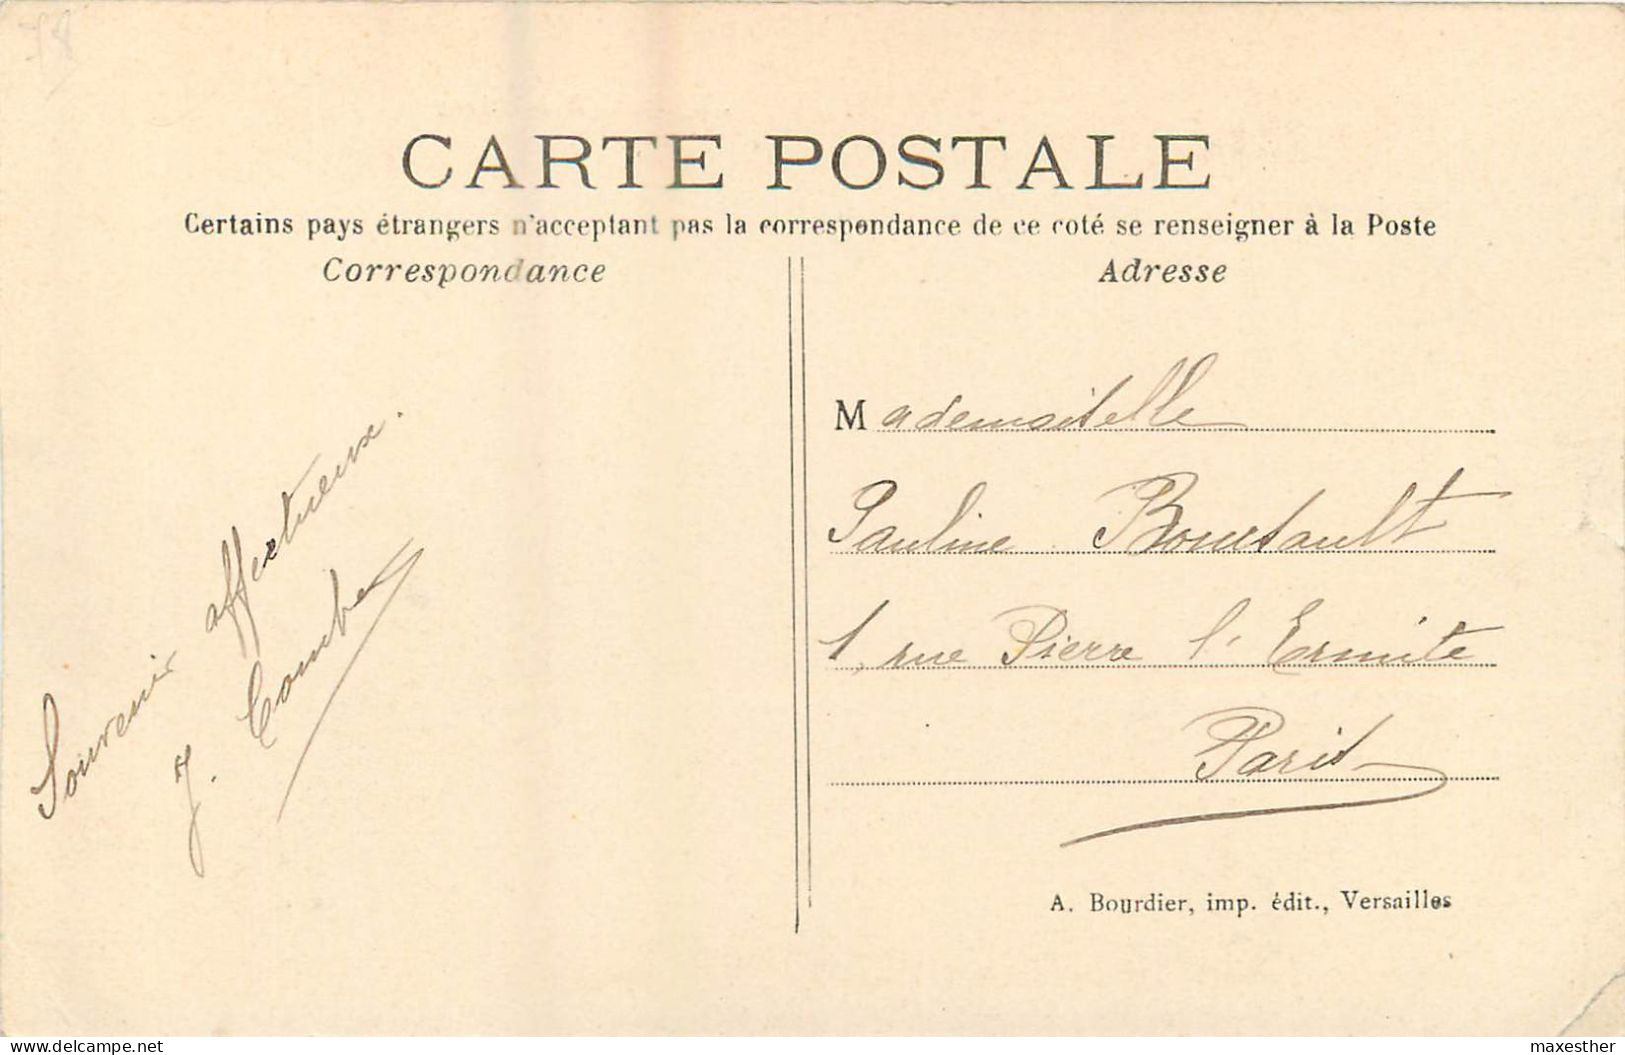 78
CARTE POSTALE
Certains pays étrangers n'acceptant pas la correspondance de ce coté se renseigner à la Poste
Correspondance
Souvenir affectueux.
J. Combe
Adresse
Mademoiselle
Pauline Boursault
1, rue Pierre l'Ermite
Paris
A. Bourdier, imp. édit., Versailles
www.delcampe.net
maxesther